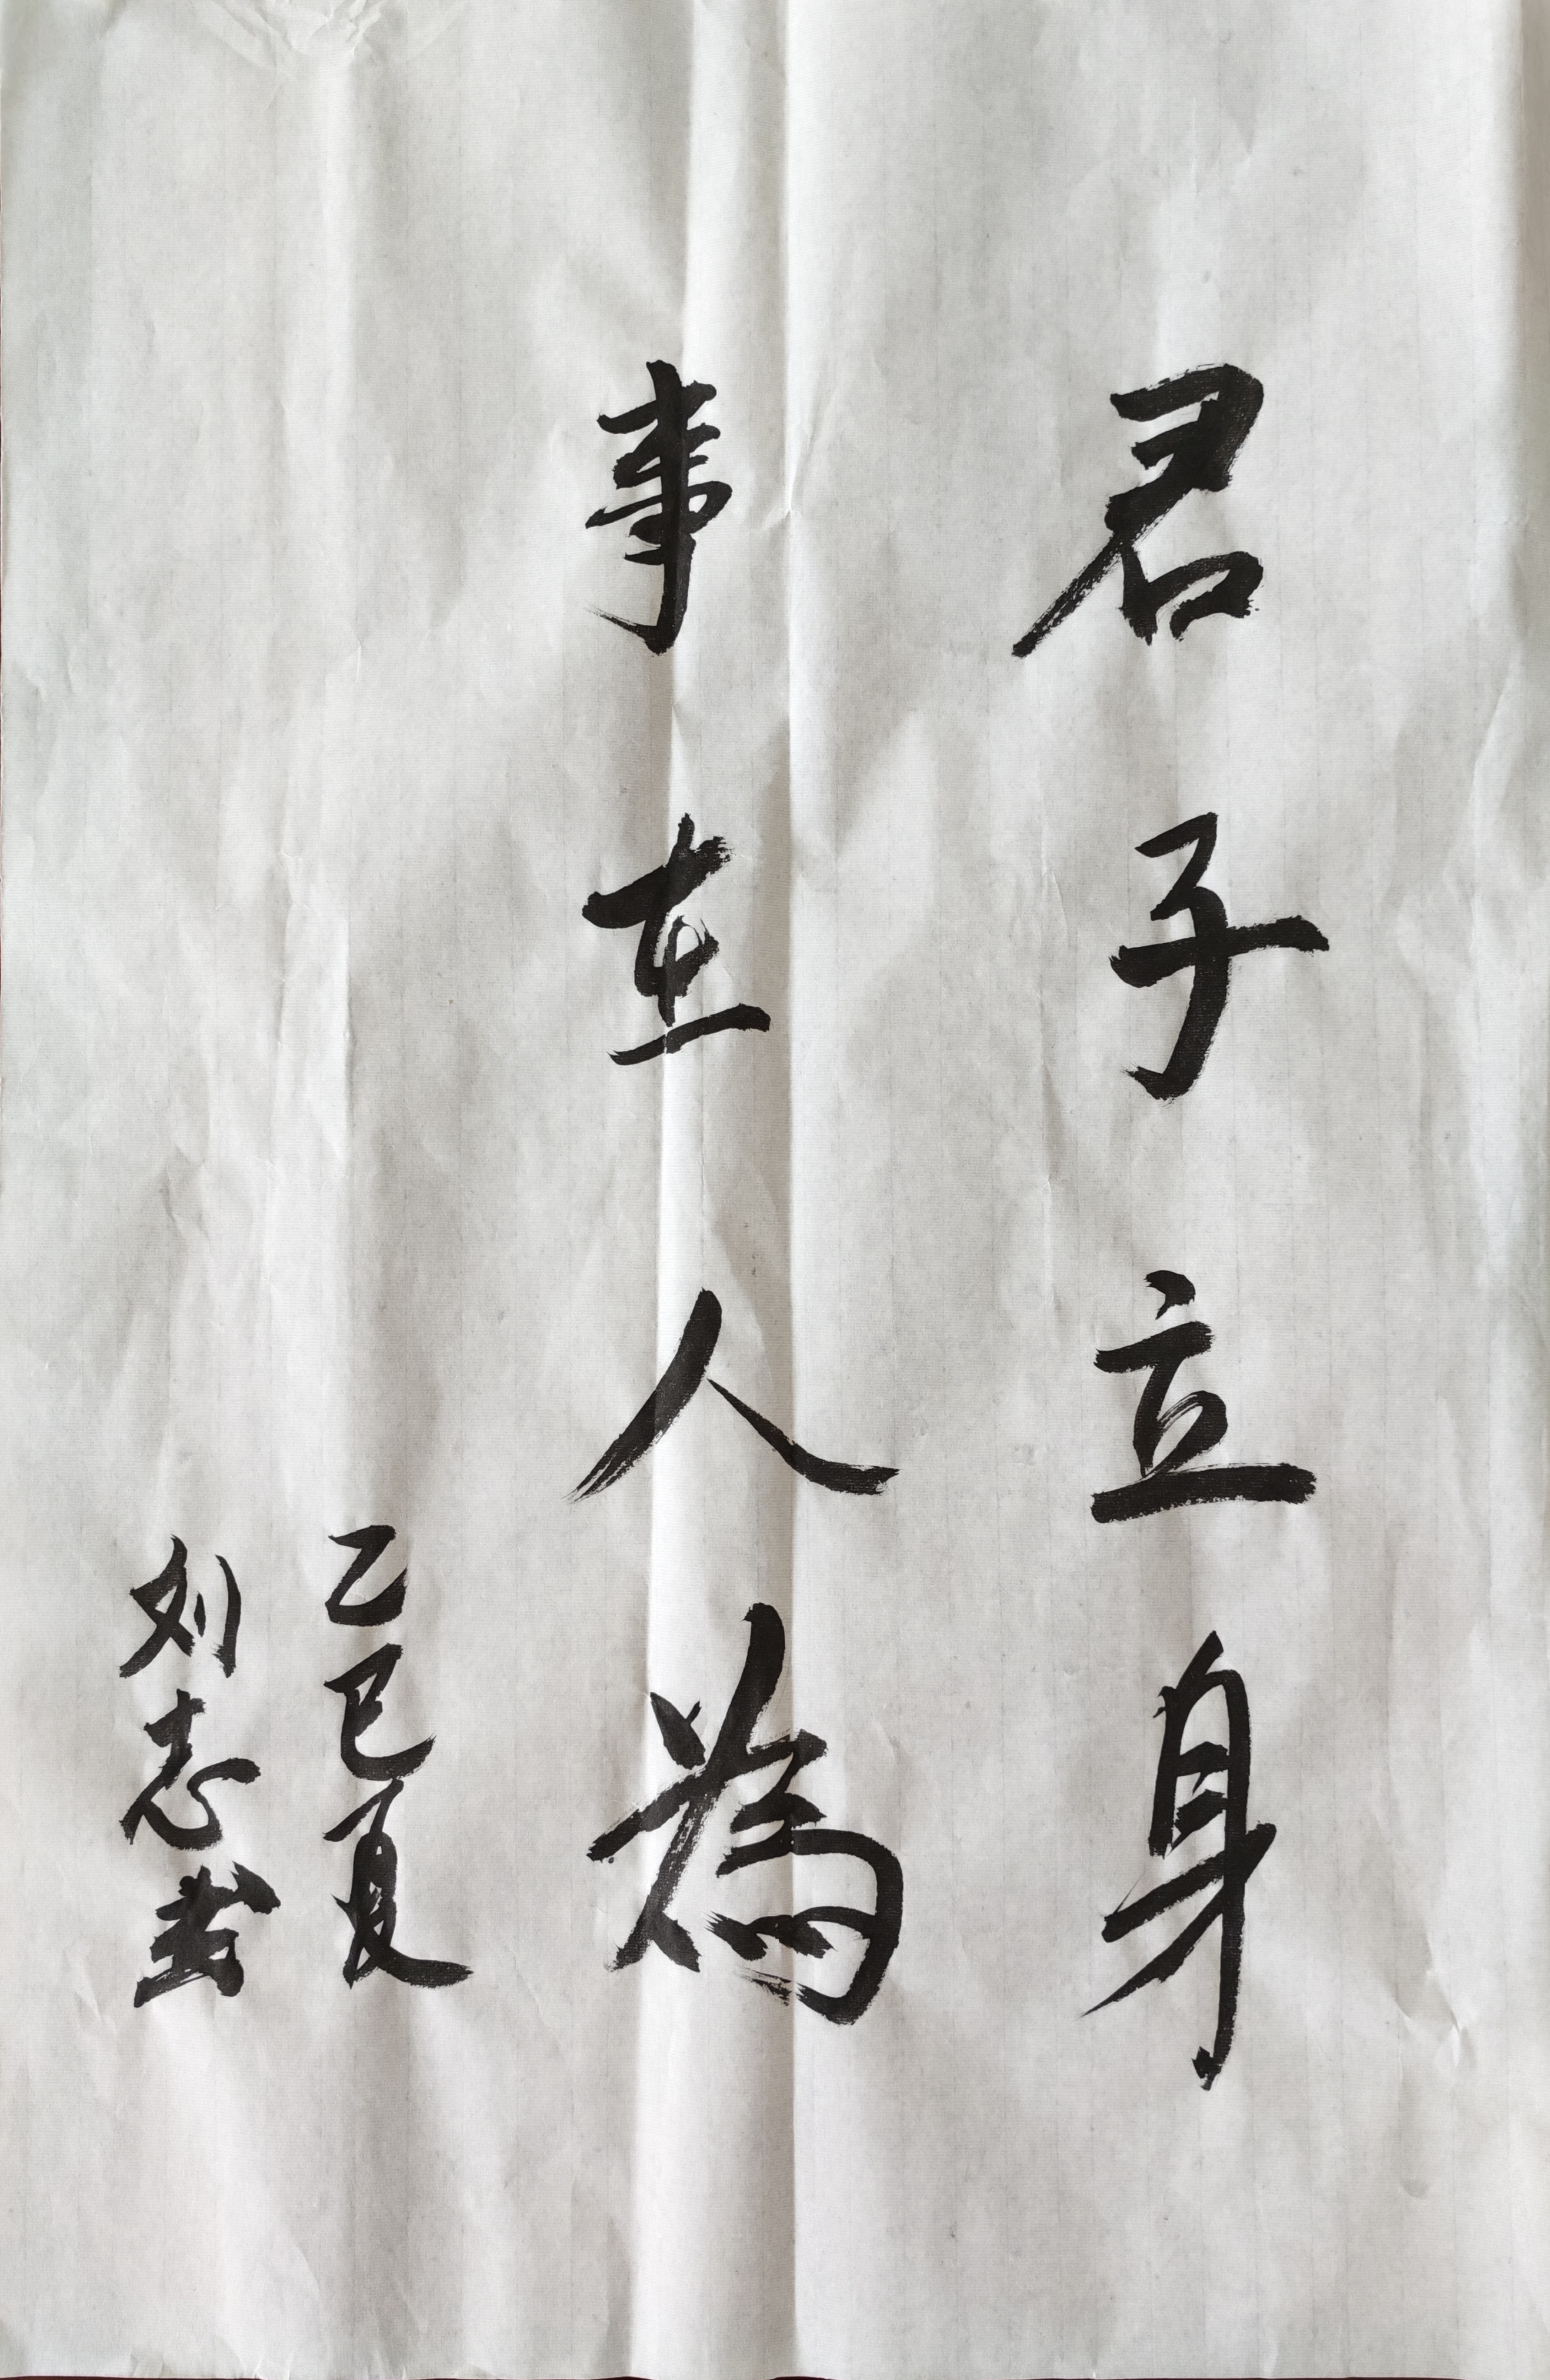 君子立身
事在人為
乙巳夏
刘志书